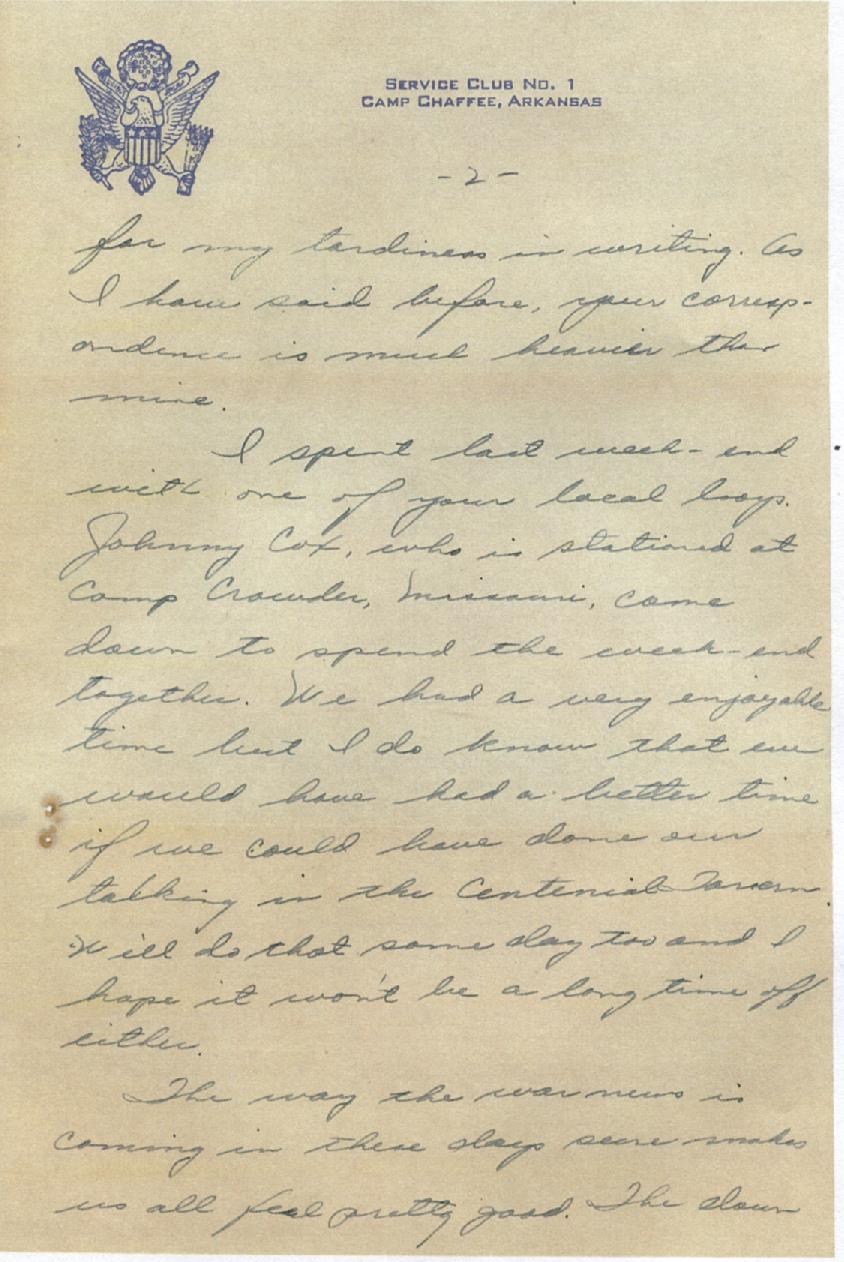 SERVICE CLUB NO. 1
CAMP CHAFFEE, ARKANSAS
-2-
for my tardiness in writing. As
I have said before, your corresp-
ondence is much heavier than
mine.
I spent last week-end
with one of your local boys.
Johnny Cox, who is stationed at
Camp Crowder, Missouri, came
down to spend the week-end
together. We had a very enjoyable
time but I do know that we
would have had a better time
if we could have done our
talking in the Centenial Tavern
Will do that some day too and I
hope it won't be a long time off
either.
The way the war news is
coming in these days sure makes
us all feel pretty good. The down